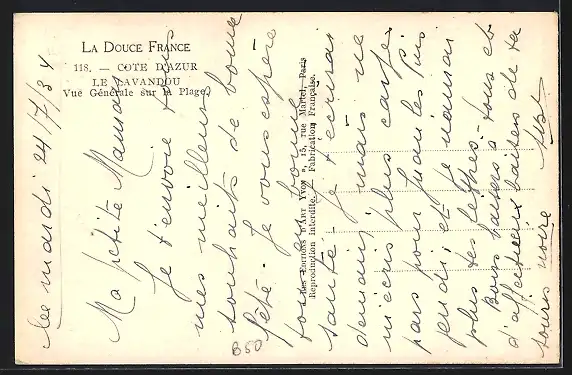 LA DOUCE FRANCE
118. — COTE D'AZUR
LE LAVANDOU
Vue Générale sur la Plage.
LES EDITIONS D'ART YVON, 15, rue Martel, Paris
Reproduction interdite. Fabrication Française.
le mardi 24/7/34
Ma petite Maman
Je t'envoie tous
mes meilleurs
souhaits de bonne
fête. Je vous espère
tous en bonne
santé. Je t'écrirai
demain mais ne
m'écris plus car je
pars pour Juan les Pins
jeudi et je n'aurai
plus tes lettres.
Bons baisers à tous et
d'affectueux baisers de ta